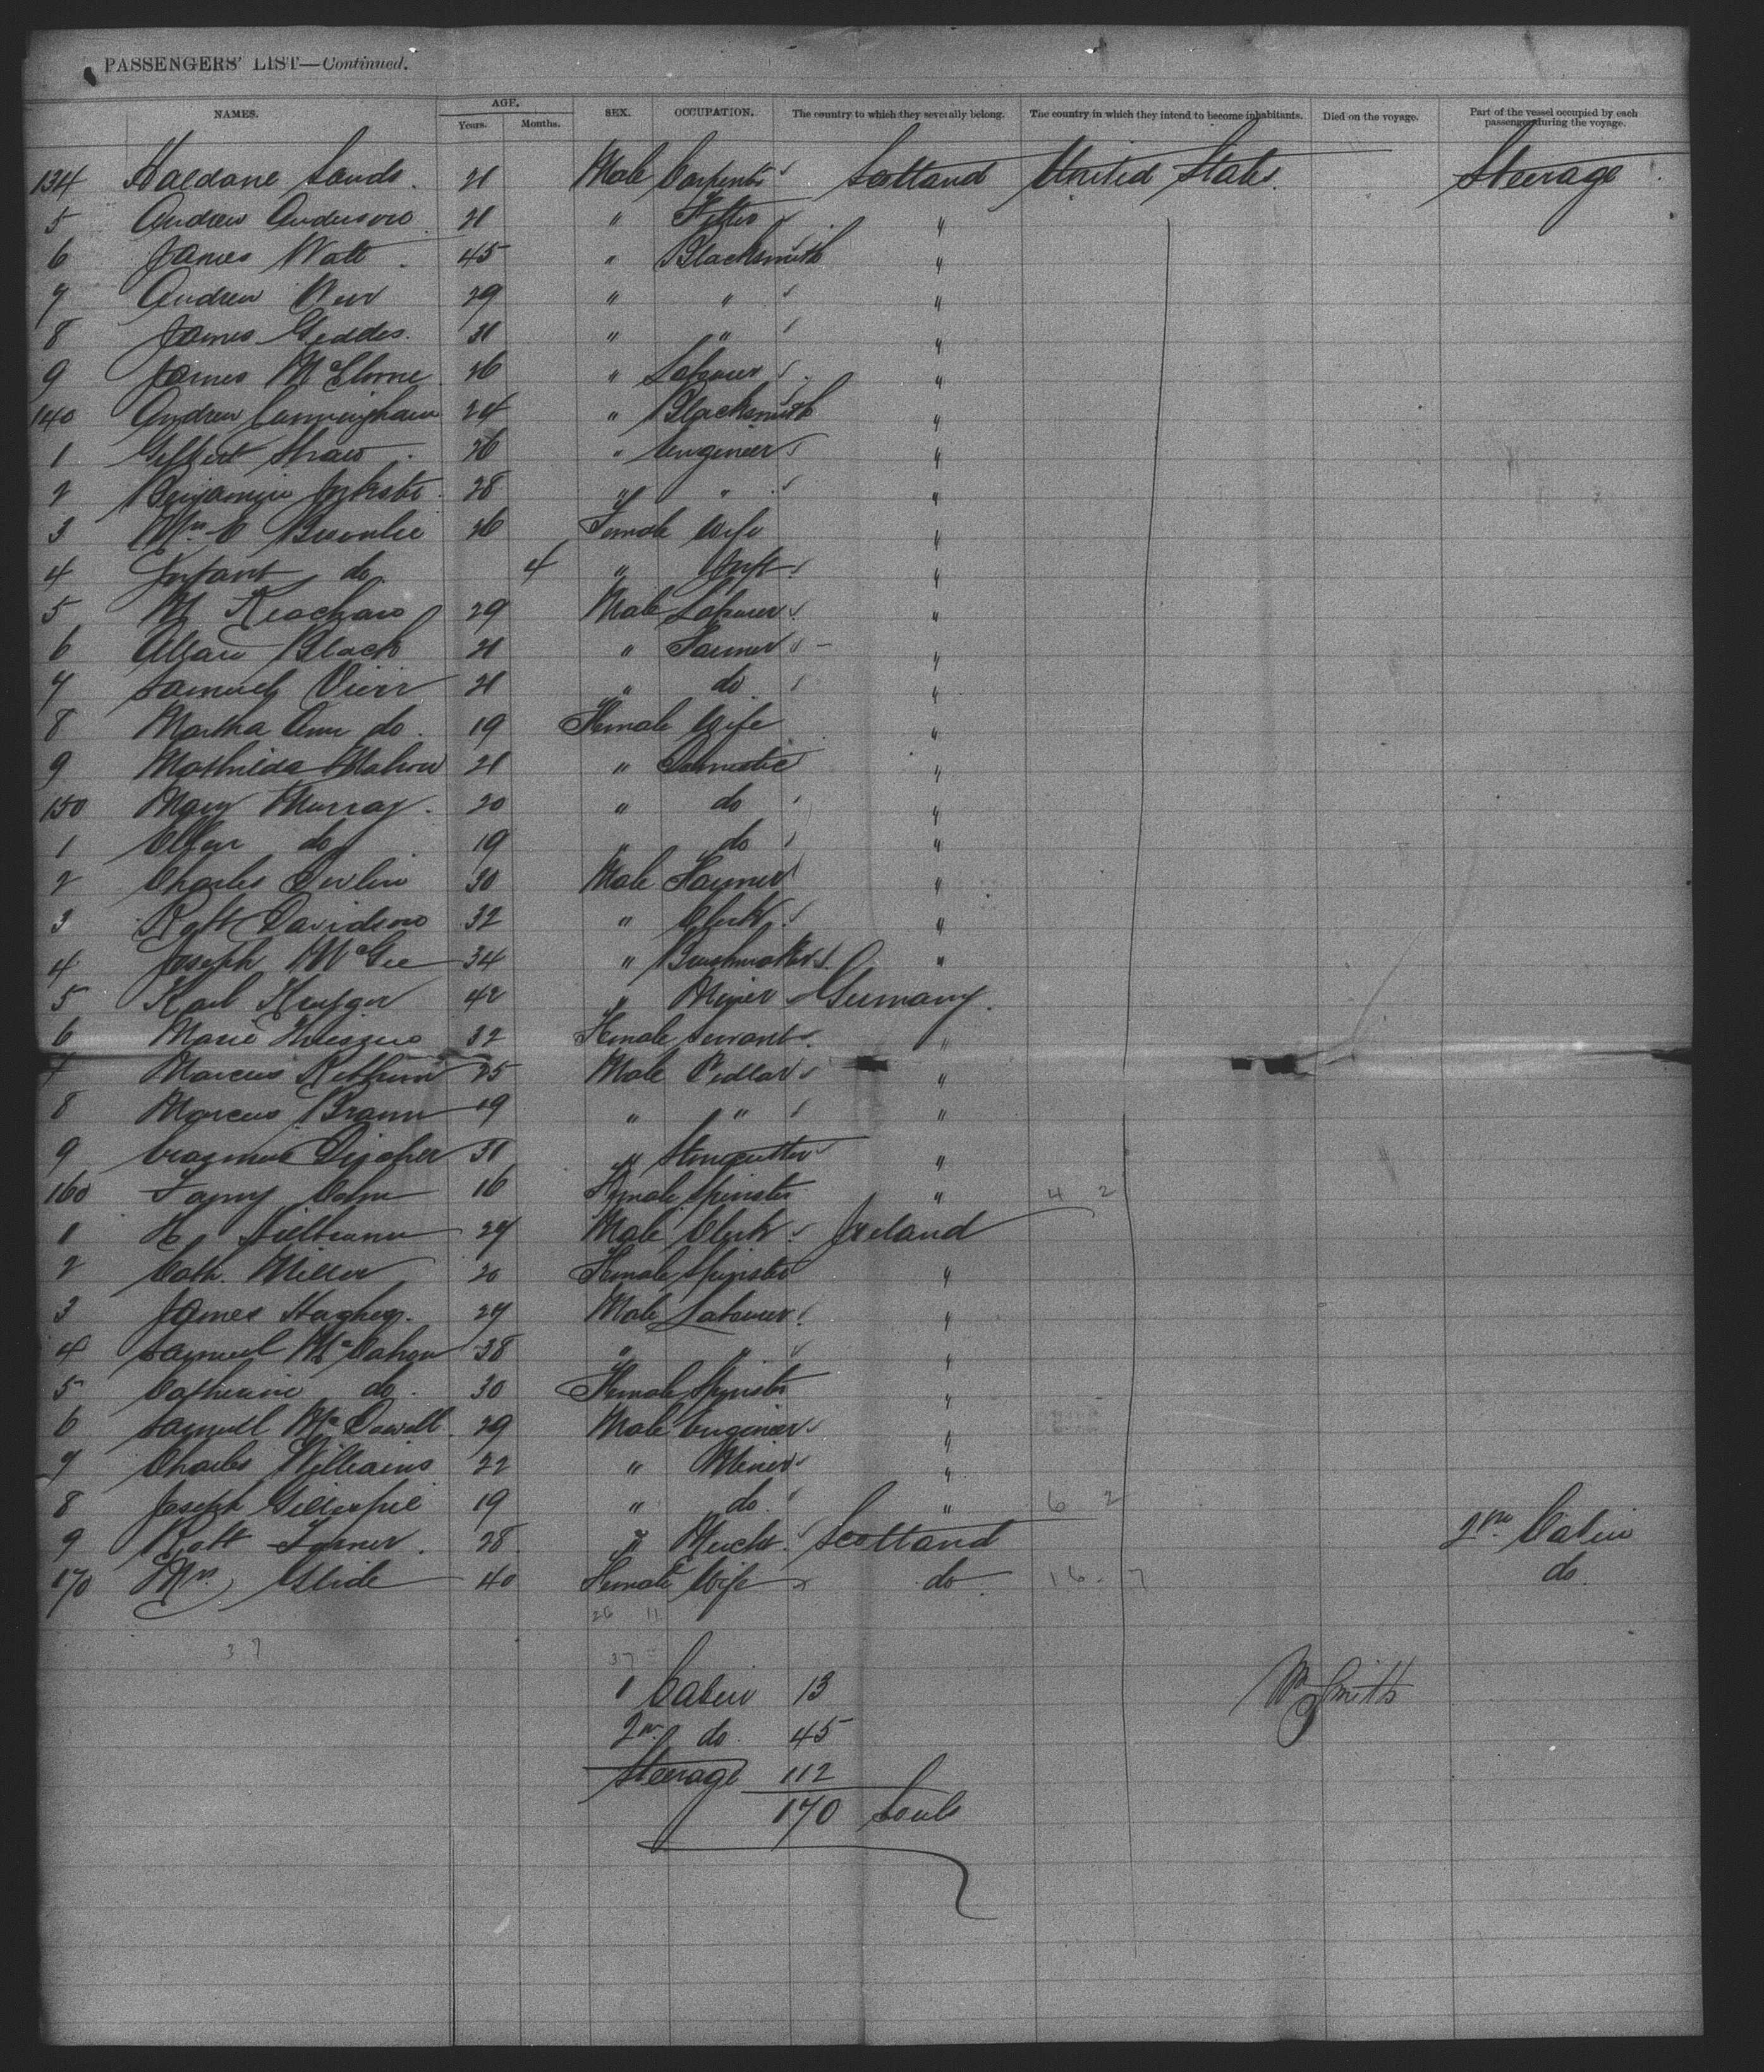 PASSENGERS' LIST—Continued.
NAMES. AGE. Years. Months. SEX. OCCUPATION. The country to which they severally belong. The country in which they intend to become inhabitants. Died on the voyage. Part of the vessel occupied by each passenger during the voyage.
134 Haldane Sands. 21 Male Carpenter Scotland United States. Steerage.
5 Andrew Anderson 21 " Fitter "
6 James Watt. 45 " Blacksmith "
7 Andrew 29 " " "
8 James Geddes. 31 " " "
9 James 26 " Labourer "
140 Andrew Cunningham 24 " Blacksmith "
1 Gilbert Shaw. 26 " Engineer "
2 Benjamin 28 " " "
3 Mrs. C Brownlie 26 Female Wife "
4 Infant do. 4 " Inft. "
5 29 Male Labourer "
6 Allan Black 21 " Farmer "
7 Samuel 21 " do "
8 Martha Ann do. 19 Female Wife "
9 21 " Domestic "
150 Mary Murray. 20 " do "
1 Ellen do 19 " do "
2 Charles Devlin 30 Male Farmer "
3 Robt Davidson 32 " Clerk "
4 Joseph McGee 34 " Brushmaker "
5 Karl 42 " Miner Germany.
6 Marie 32 Female Servant "
7 Marcus 25 Male Pedlar "
8 Marcus Braun 19 " " "
9 31 " Stonecutter "
160 Fanny 16 Female Spinster " 4 2
1 H 27 Male Clerk Ireland
2 Cath. Miller 20 Female Spinster "
3 James Haghey. 27 Male Labourer "
4 Samuel McCahon 38 " " "
5 Catherine do. 30 Female Spinster "
6 Samuell McDowell. 29 Male Engineer "
7 Charles Williams 22 " Miner "
8 Joseph Gillespie 19 " do. " 6 2
9 Robt 28. " Mercht. Scotland 2nd Cabin
170 Mrs. 40 Female Wife do 16. 7 do.
26 11
37
37
1 Cabin 13
2nd do. 45
Steerage 112
170 Souls
Wm Smith